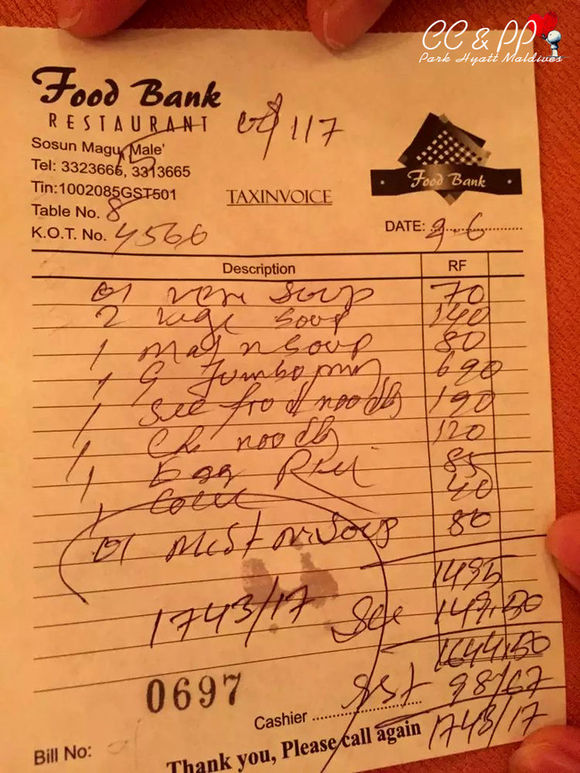 CC & PP
Park Hyatt Maldives
Food Bank
RESTAURANT
117
Sosun Magu, Male'
Tel: 3323666, 3313665
Tin:1002085GST501
TAXINVOICE
Food Bank
Table No. 8
K.O.T. No. 4566
DATE: 9-6
Description RF
01 Soup 70
2 Soup 140
1 Soup 80
1 G Jumbo 690
1 See food noodls 190
1 Ch noodls 120
1 Egg 85
1 40
01 Soup 80
1495
1743/17 149.50
1644.50
0697
GST 98/67
Cashier
1743/17
Bill No:
Thank you, Please call again